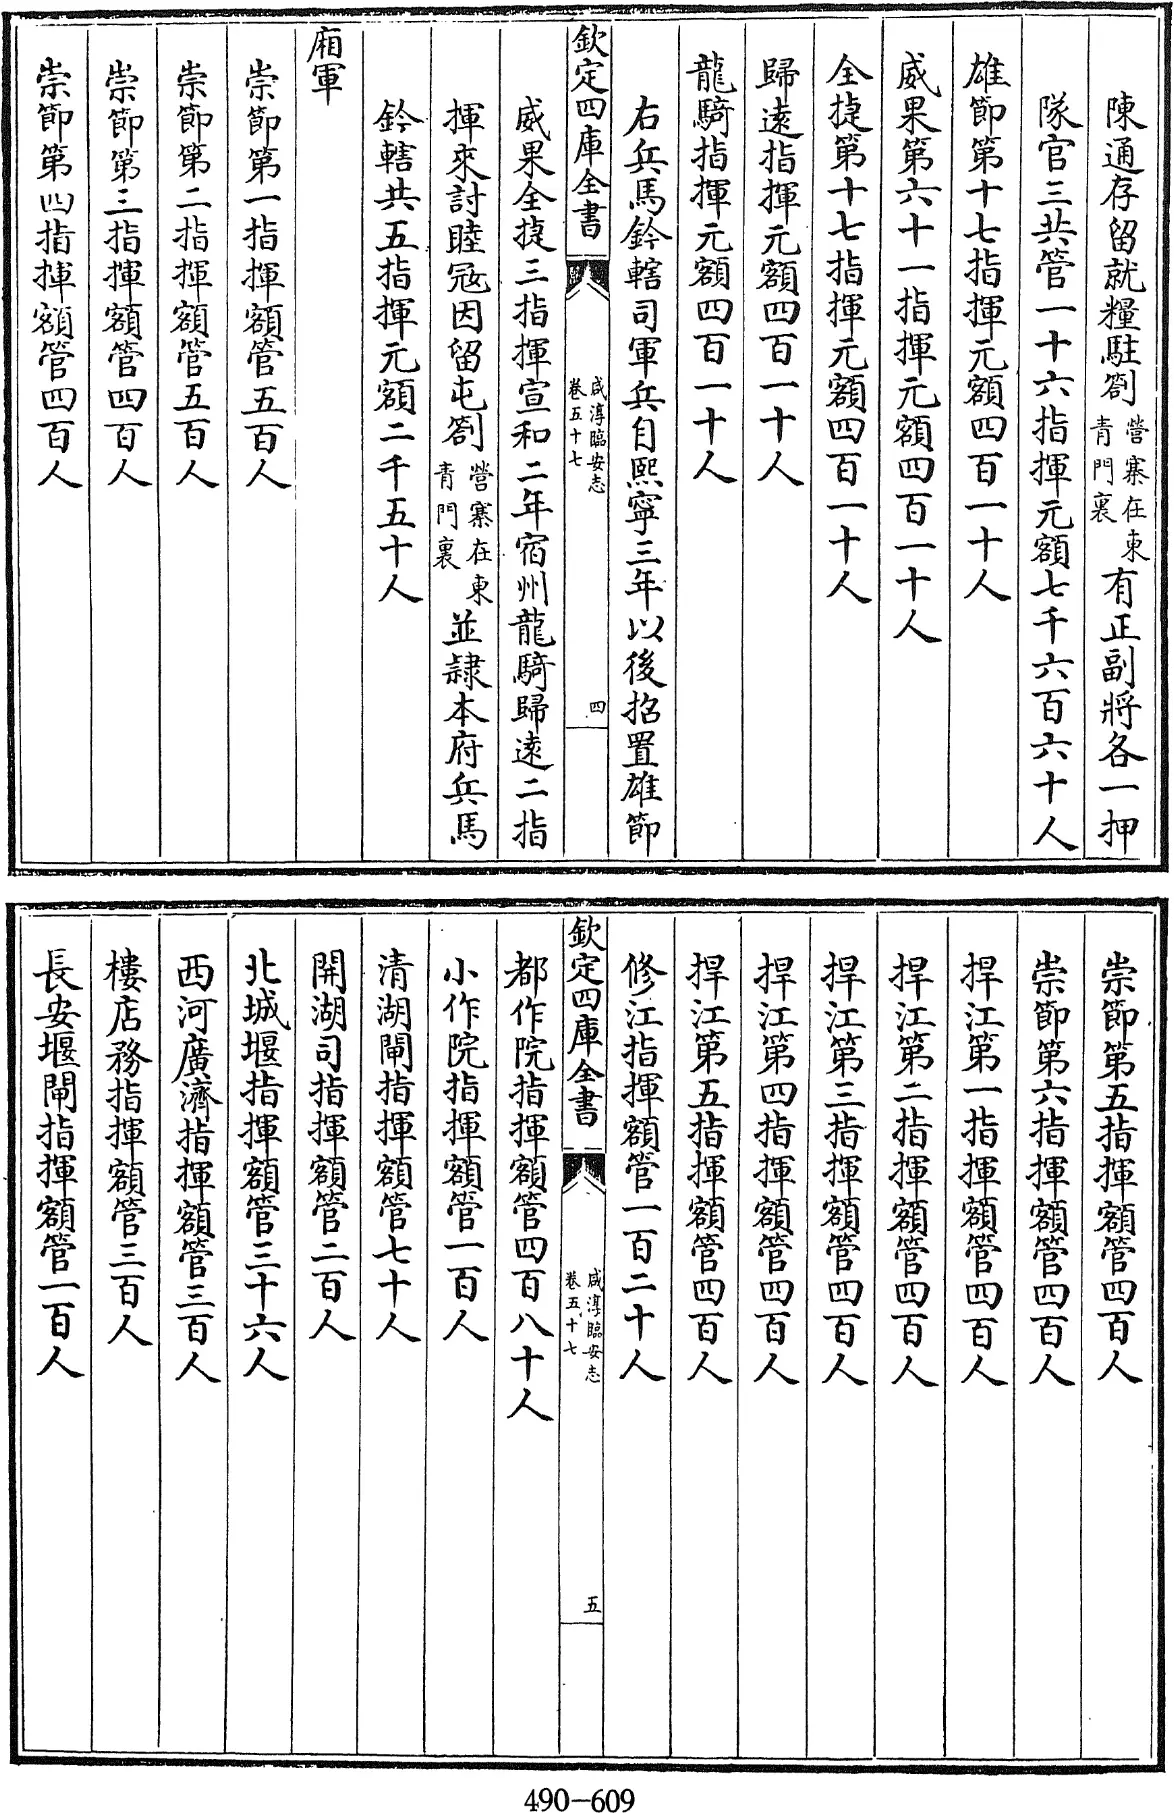 陳通存留就糧駐劄營寨在東青門裏有正副將各一押
隊官三共管一十六指揮元額七千六百六十人
雄節第十七指揮元額四百一十人
威果第六十一指揮元額四百一十人
全捷第十七指揮元額四百一十人
歸遠指揮元額四百一十人
龍騎指揮元額四百一十人
右兵馬鈐轄司軍兵自熙寧三年以後招置雄節
欽定四庫全書
咸淳臨安志
卷五十七
四
威果全捷三指揮宣和二年宿州龍騎歸遠二指
揮來討睦冦因留屯劄營寨在東青門裏並隷本府兵馬
鈐轄共五指揮元額二千五十人
廂軍
崇節第一指揮額管五百人
崇節第二指揮額管五百人
崇節第三指揮額管四百人
崇節第四指揮額管四百人
崇節第五指揮額管四百人
崇節第六指揮額管四百人
捍江第一指揮額管四百人
捍江第二指揮額管四百人
捍江第三指揮額管四百人
捍江第四指揮額管四百人
捍江第五指揮額管四百人
修江指揮額管一百二十人
欽定四庫全書
咸淳臨安志
卷五十七
五
都作院指揮額管四百八十人
小作院指揮額管一百人
清湖閘指揮額管七十人
開湖司指揮額管二百人
北城堰指揮額管三十六人
西河廣濟指揮額管三百人
樓店務指揮額管三百人
長安堰閘指揮額管一百人
490-609